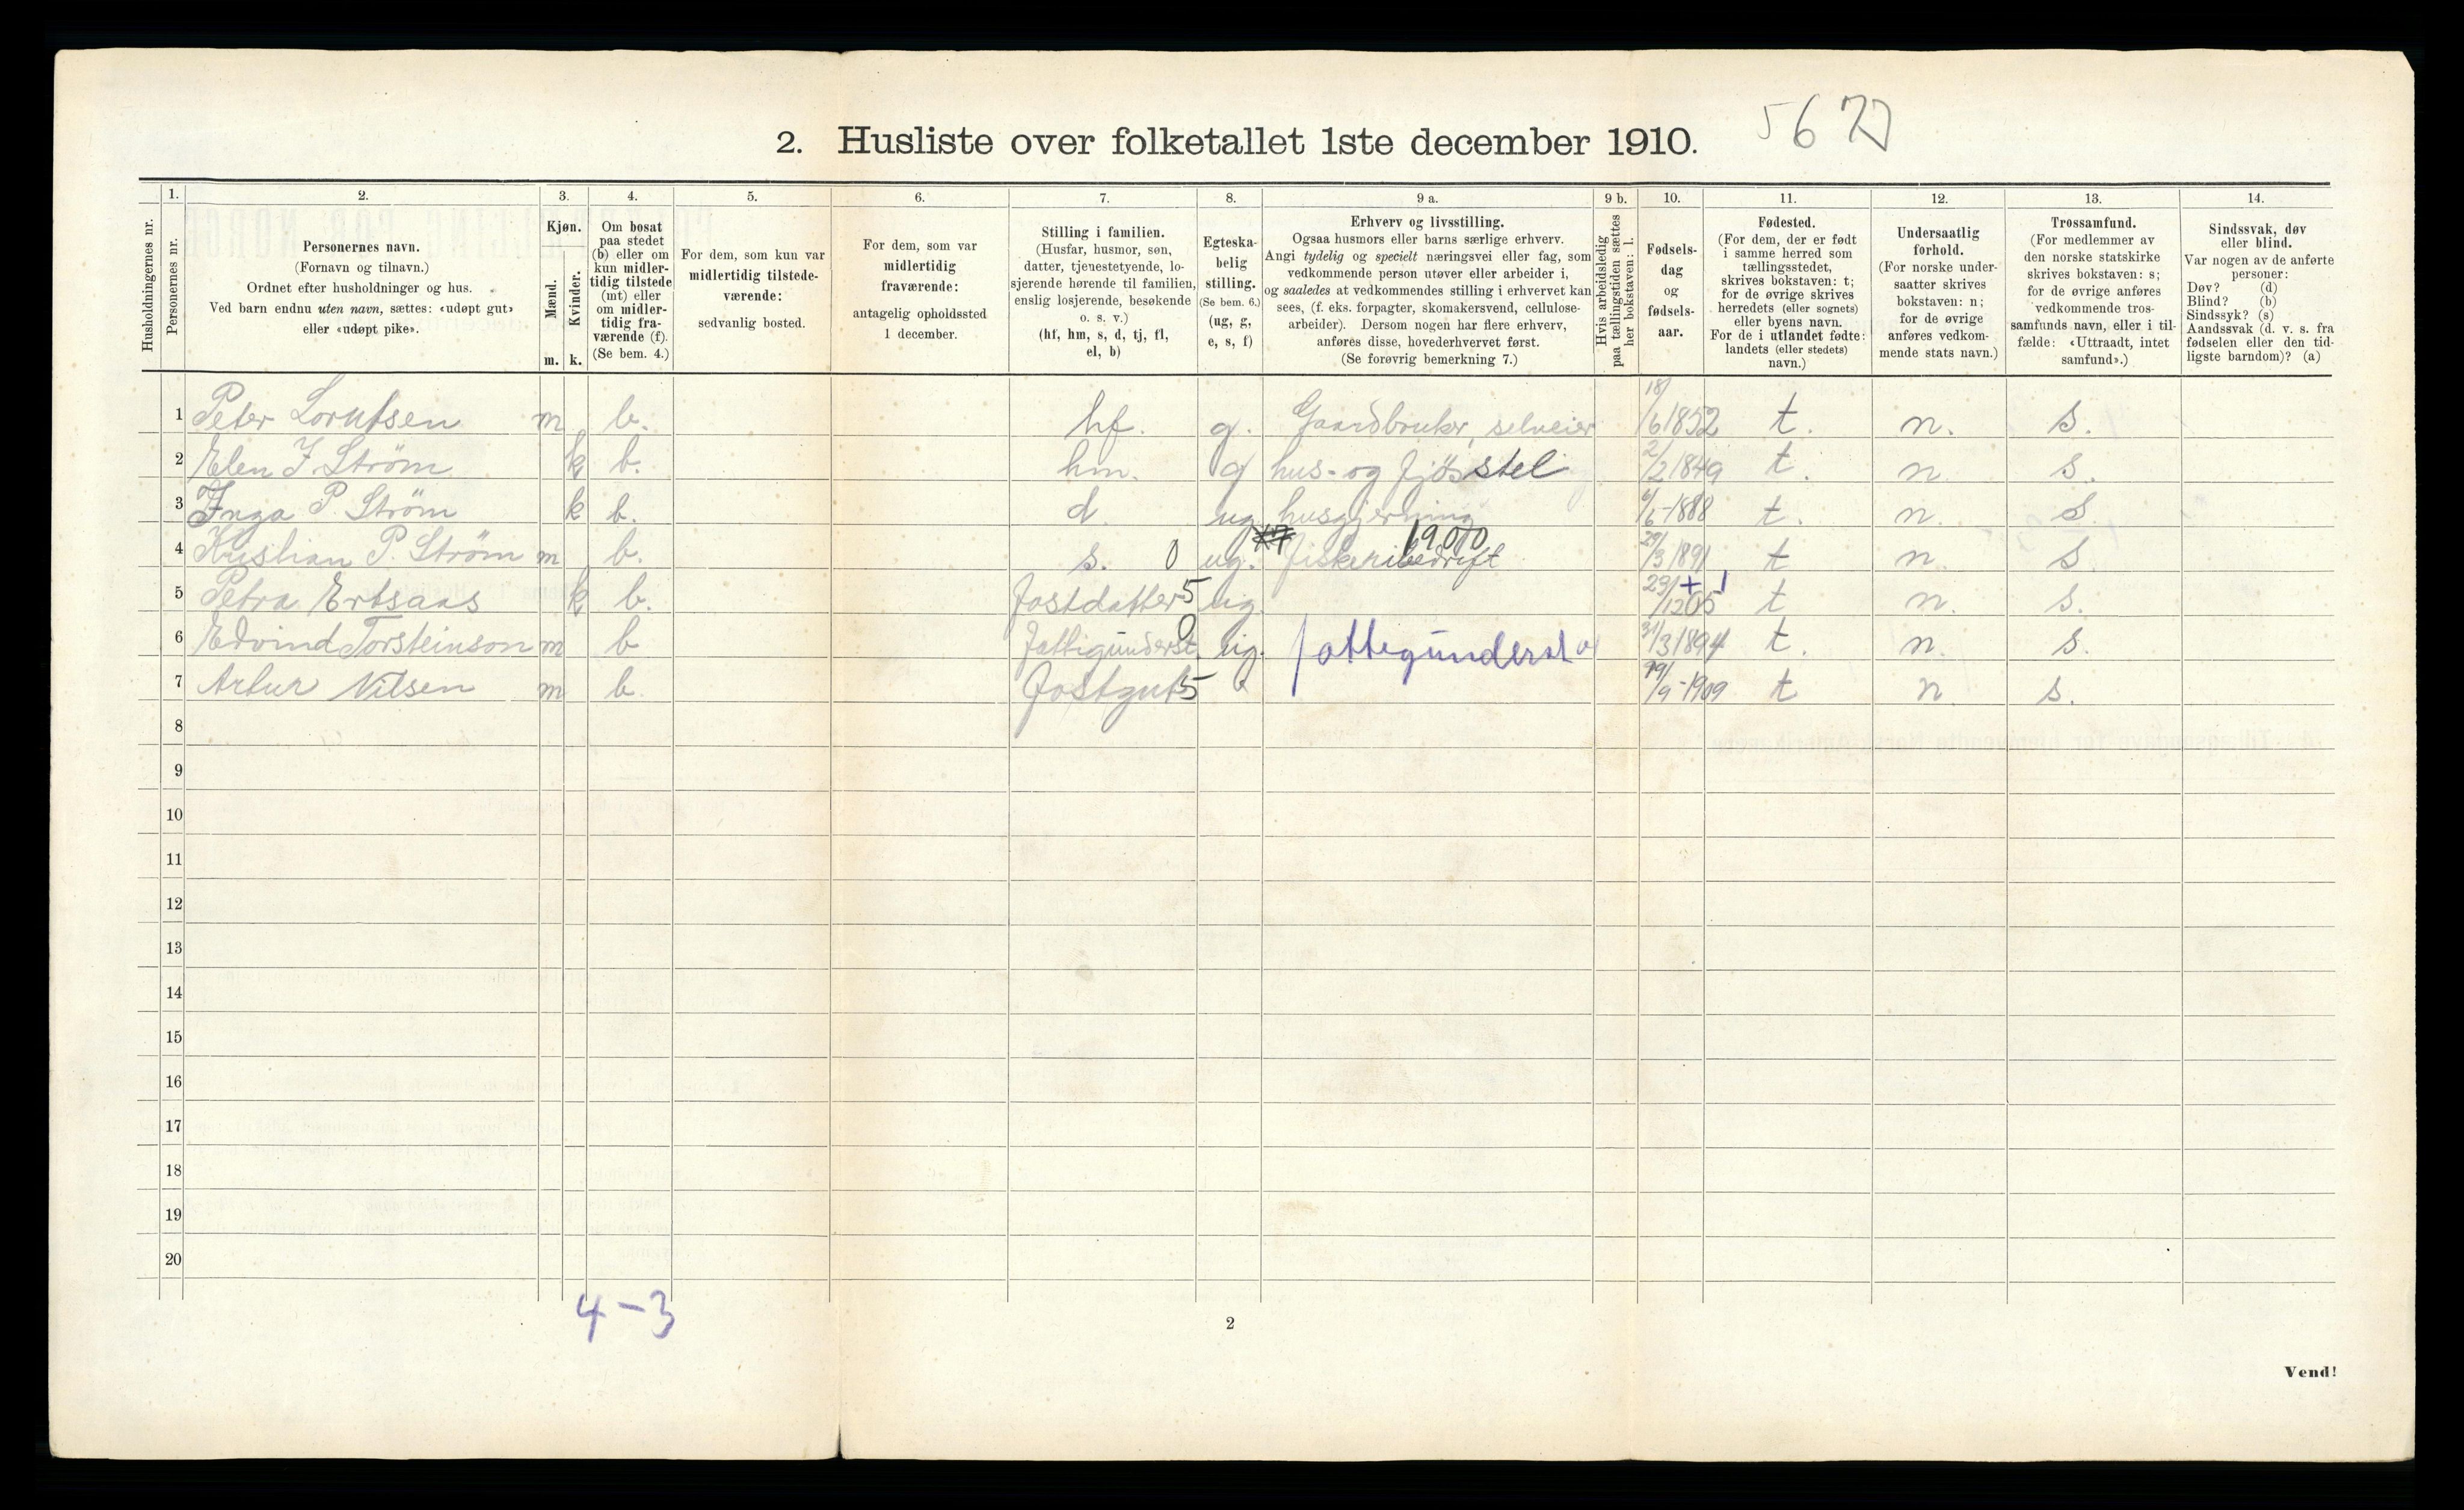 567
2. Husliste over folketallet 1ste december 1910.
Husholdningernes nr.
1.
Personernes nr.
2.
Personernes navn.
(Fornavn og tilnavn.)
Ordnet efter husholdninger og hus.
Ved barn endnu uten navn, sættes: «udøpt gut»
eller «udøpt pike».
3.
Kjøn.
Mænd.
Kvinder.
m. k.
4.
Om bosat
paa stedet
(b) eller om
kun midler-
tidig tilstede
(mt) eller
om midler-
tidig fra-
værende (f).
(Se bem. 4.)
5.
For dem, som kun var
midlertidig tilstede-
værende:
sedvanlig bosted.
6.
For dem, som var
midlertidig
fraværende:
antagelig opholdssted
1 december.
7.
Stilling i familien.
(Husfar, husmor, søn,
datter, tjenestetyende, lo-
sjerende hørende til familien,
enslig losjerende, besøkende
o. s. v.)
(hf, hm, s, d, tj, fl,
el, b)
8.
Egteska-
belig
stilling.
(Se bem. 6.)
(ug, g,
e, s, f)
9 a.
Erhverv og livsstilling.
Ogsaa husmors eller barns særlige erhverv.
Angi tydelig og specielt næringsvei eller fag, som
vedkommende person utøver eller arbeider i,
og saaledes at vedkommendes stilling i erhvervet kan
sees, (f. eks. forpagter, skomakersvend, cellulose-
arbeider). Dersom nogen har flere erhverv,
anføres disse, hovederhvervet først.
(Se forøvrig bemerkning 7.)
9 b.
Hvis arbeidsledig
paa tællingstiden sættes
her bokstaven: l.
10.
Fødsels-
dag
og
fødsels-
aar.
11.
Fødested.
(For dem, der er født
i samme herred som
tællingsstedet,
skrives bokstaven: t;
for de øvrige skrives
herredets (eller sognets)
eller byens navn.
For de i utlandet fødte:
landets (eller stedets)
navn.)
12.
Undersaatlig
forhold.
(For norske under-
saatter skrives
bokstaven: n;
for de øvrige
anføres vedkom-
mende stats navn.)
13.
Trossamfund.
(For medlemmer av
den norske statskirke
skrives bokstaven: s;
for de øvrige anføres
vedkommende tros-
samfunds navn, eller i til-
fælde: «Uttraadt, intet
samfund».)
14.
Sindssvak, døv
eller blind.
Var nogen av de anførte
personer:
Døv? (d)
Blind? (b)
Sindssyk? (s)
Aandssvak (d. v. s. fra
fødselen eller den tid-
ligste barndom)? (a)
1 Peter Lorntsen m b. hf. g. Gaardbruker, selveier 18/6 1852 t. n. s.
2 Elen J. Ström k b. hm. g hus- og fjösstel 2/2 1849 t. n s.
3 Inga P. Ström k b. d. ug. husgjerning 6/6-1888 t. n. s.
4 Kristian P. Ström m b. s. 0 ug. fiskeribedrift 19.000 29/3 1891 t n. s
5 Petra Ertsaas k b. Fostdatter 5 ug. 23/12 05 + 1 t n. s.
6 Edvind Torsteinson m b Fattigunderst. 0 ug. fattegunderst 31/3 1894 t. n. s.
7 Artur Nilsen m b. Fostgut 5 19/9-1909 t n s.
8
9
10
11
12
13
14
15
16
17
18
19
20
4-3
2
Vend!